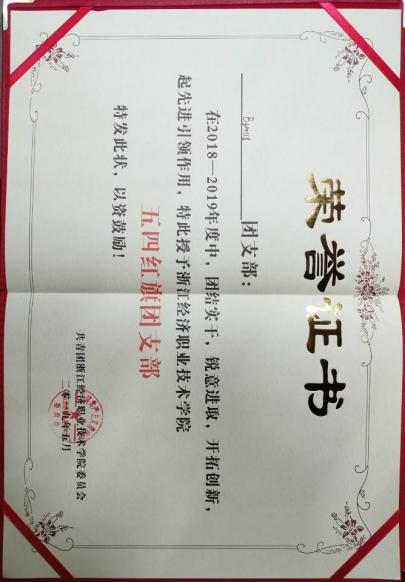 荣誉证书
团支部：
在2018—2019年度中，团结实干，锐意进取，开拓创新，
起先进引领作用，特此授予浙江经济职业技术学院
五四红旗团支部
特发此状，以资鼓励！
共青团浙江经济职业技术学院委员会
二零一九年五月